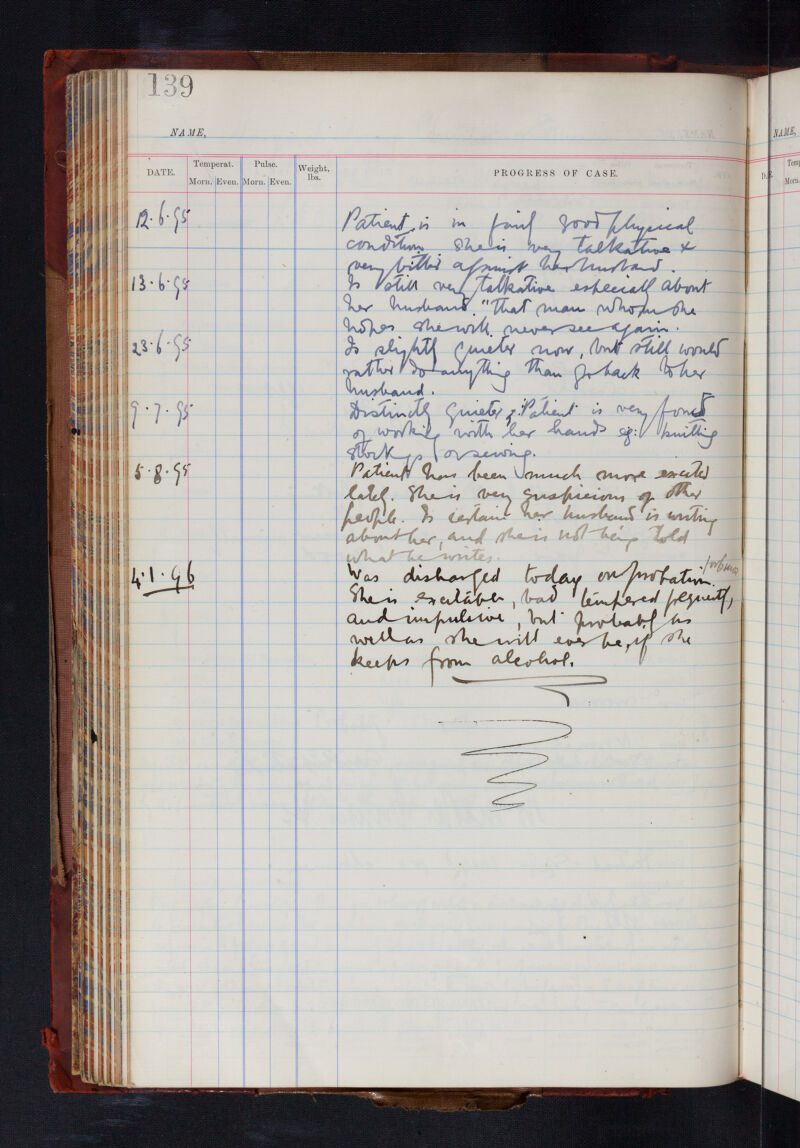 139
NAME,
DATE.
Temperat.
Morn. Even.
Pulse.
Morn. Even.
Weight, lbs.
PROGRESS OF CASE.
12.6.95
Patient is in good physical
condition she is very talkative &
very bitter against her husband.
13.6.95
Is still very talkative especially about
her husband. "that man whom she
hopes she will never see again.
23.6.95
Is slightly quieter now, but still would
rather do anything than go back to her
husband.
9.7.95
Distinctly quieter. Patient is very fond
of working with her hands eg: knitting
stockings or sewing.
5.8.95
Patient has been much more excited
lately. She is very suspicious of other
people. Is certain her husband is writing
about her, and she is not being told
what he writes.
4.1.96
Was discharged today on probation
She is excitable, bad tempered frequently,
and impulsive, but probably as
well as she will ever be, if she
keeps from alcohol.
NAME,
Temp
Morn.